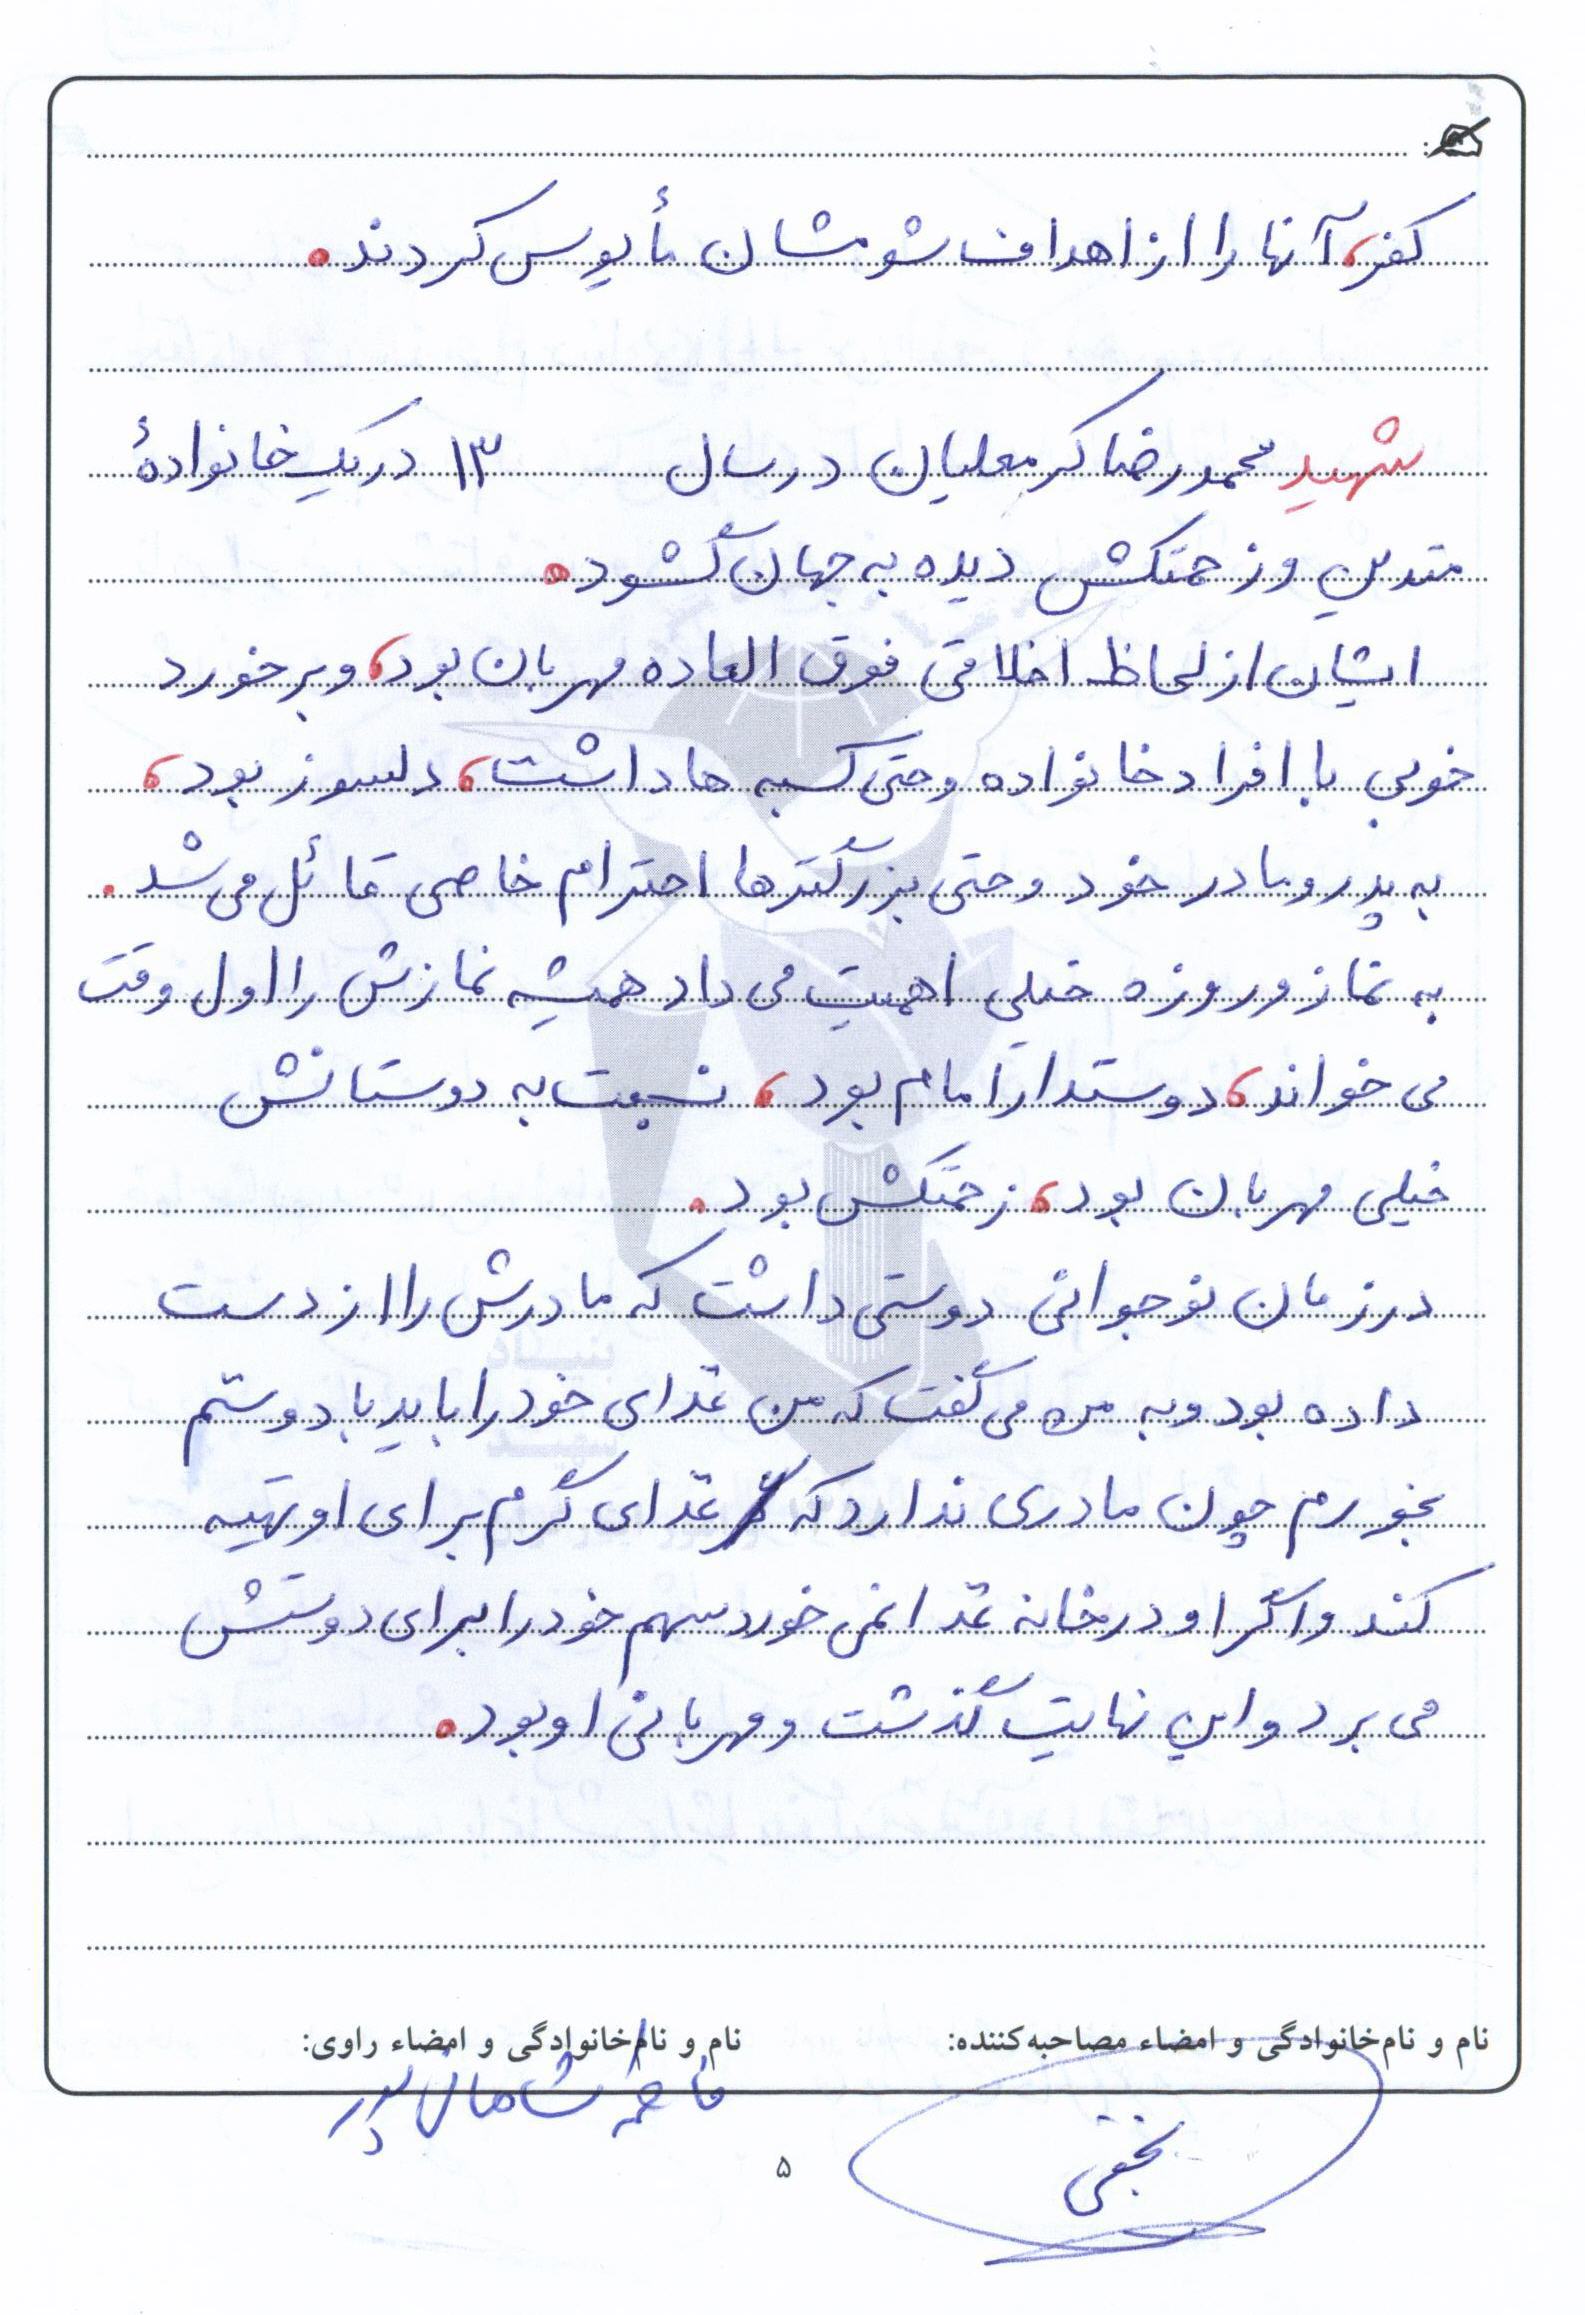 کفر، آنها را از اهداف شومشان مأیوس کردند.
شهید محمدرضا کرمعلیان در سال ۱۳ در یک خانوادهٔ
متدین و زحمتکش دیده به جهان گشود.
ایشان از لحاظ اخلاقی فوق العاده مهربان بود، و برخورد
خوبی با افراد خانواده و حتی کسبه ها داشت، دلسوز بود،
به پدر و مادر خود و حتی بزرگترها احترام خاصی قائل می شد.
به نماز و روزه خیلی اهمیت می داد همیشه نمازش را اول وقت
می خواند، دوستدار امام بود، نسبت به دوستانش
خیلی مهربان بود، زحمتکش بود.
در زمان نوجوانی دوستی داشت که مادرش را از دست
داده بود و به من می گفت که من غذای خود را باید با دوستم
بخورم چون مادری ندارد که غذای گرم برای او تهیه
کند و اگر او در خانه غذا نمی خورد سهم خود را برای دوستش
می برد و این نهایت گذشت و مهربانی او بود.
نام و نام‌خانوادگی و امضاء مصاحبه‌کننده: نام و نام‌خانوادگی و امضاء راوی:
نجفی فاطمه شاهان پور
۵
بنیاد
شهید